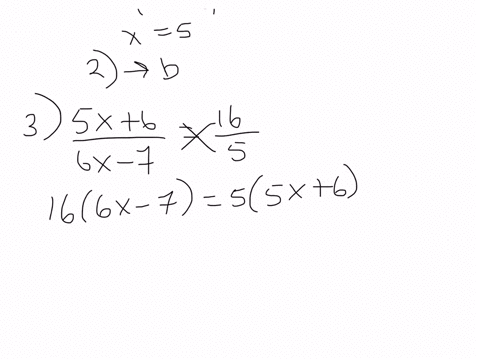 x = 5
2) → b
3) (5x+6)/(6x-7) = 16/5
16(6x-7) = 5(5x+6)